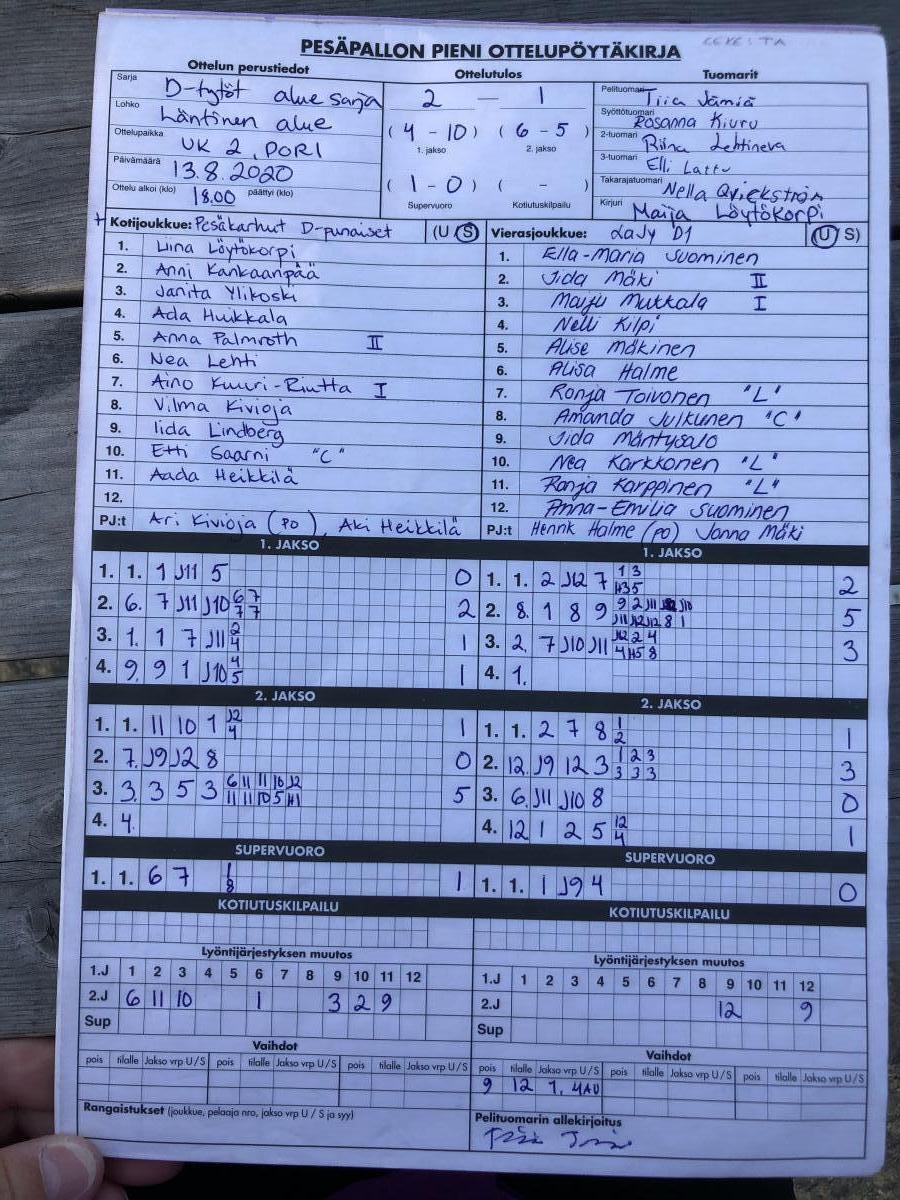 PESÄPALLON PIENI OTTELUPÖYTÄKIRJA
Ottelun perustiedot
Sarja D-tytöt alue sarja
Lohko Läntinen alue
Ottelupaikka UK 2, PORI
Päivämäärä 13.8.2020
Ottelu alkoi (klo) 18.00 päättyi (klo)
Ottelutulos
2 — 1
( 4 - 10 ) ( 6 - 5 )
1. jakso 2. jakso
( 1 - 0 ) ( - )
Supervuoro Kotiutuskilpailu
Tuomarit
Pelituomari Tiia Jämiä
Syöttötuomari Rosanna Kiuru
2-tuomari Riina Lehtineva
3-tuomari Elli Lattu
Takarajatuomari Nella Qvickström
Kirjuri Maija Löytökorpi
+ Kotijoukkue: Pesäkarhut D-punaiset (U S)
1. Liina Löytökorpi
2. Anni Kankaanpää
3. Janita Ylikoski
4. Ada Huikkala
5. Anna Palmroth II
6. Nea Lehti
7. Aino Kuuri-Riutta I
8. Vilma Kivioja
9. Iida Lindberg
10. Etti Saarni "C"
11. Aada Heikkilä
12.
PJ:t Ari Kivioja (PO), Aki Heikkilä
Vierasjoukkue: LaJy D1 (U S)
1. Ella-Maria Suominen
2. Iida Mäki II
3. Maiju Mukkala I
4. Nelli Kilpi
5. Alise Mäkinen
6. Alisa Halme
7. Ronja Toivonen "L"
8. Amanda Julkunen "C"
9. Iida Mäntysalo
10. Nea Karkkonen "L"
11. Ronja Karppinen "L"
12. Anna-Emilia Suominen
PJ:t Henrik Halme (PO) Jonna Mäki
1. JAKSO
1. 1. 1 J11 5 0
2. 6. 7 J11 J10 6 7 7 7 2
3. 1. 1 7 J11 2 4 1
4. 9. 9 1 J10 4 5 1
1. JAKSO
1. 1. 2 J12 7 1 3 H3 5 2
2. 8. 1 8 9 9 2 J11 J10 J11 J12 J12 8 1 5
3. 2. 7 J10 J11 J12 2 4 4 H5 8 3
4. 1.
2. JAKSO
1. 1. 11 10 1 J2 4 1
2. 7. J9 J2 8 0
3. 3. 3 5 3 6 11 11 10 J2 11 11 10 5 H1 5
4. 4.
2. JAKSO
1. 1. 2 7 8 1 2 1
2. 12. J9 12 3 1 2 3 3 3 3 3
3. 6. J11 J10 8 0
4. 12 1 2 5 12 4 1
SUPERVUORO
1. 1. 6 7 1 8 1
SUPERVUORO
1. 1. 1 J9 4 0
KOTIUTUSKILPAILU
KOTIUTUSKILPAILU
Lyöntijärjestyksen muutos
1.J 1 2 3 4 5 6 7 8 9 10 11 12
2.J 6 11 10 1 3 2 9
Sup
Lyöntijärjestyksen muutos
1.J 1 2 3 4 5 6 7 8 9 10 11 12
2.J 12 9
Sup
Vaihdot
pois tilalle Jakso vrp U/S pois tilalle Jakso vrp U/S pois tilalle Jakso vrp U/S
Vaihdot
pois tilalle Jakso vrp U/S pois tilalle Jakso vrp U/S pois tilalle Jakso vrp U/S
9 12 1. 4AU
Rangaistukset (joukkue, pelaaja nro, jakso vrp U / S ja syy)
Pelituomarin allekirjoitus